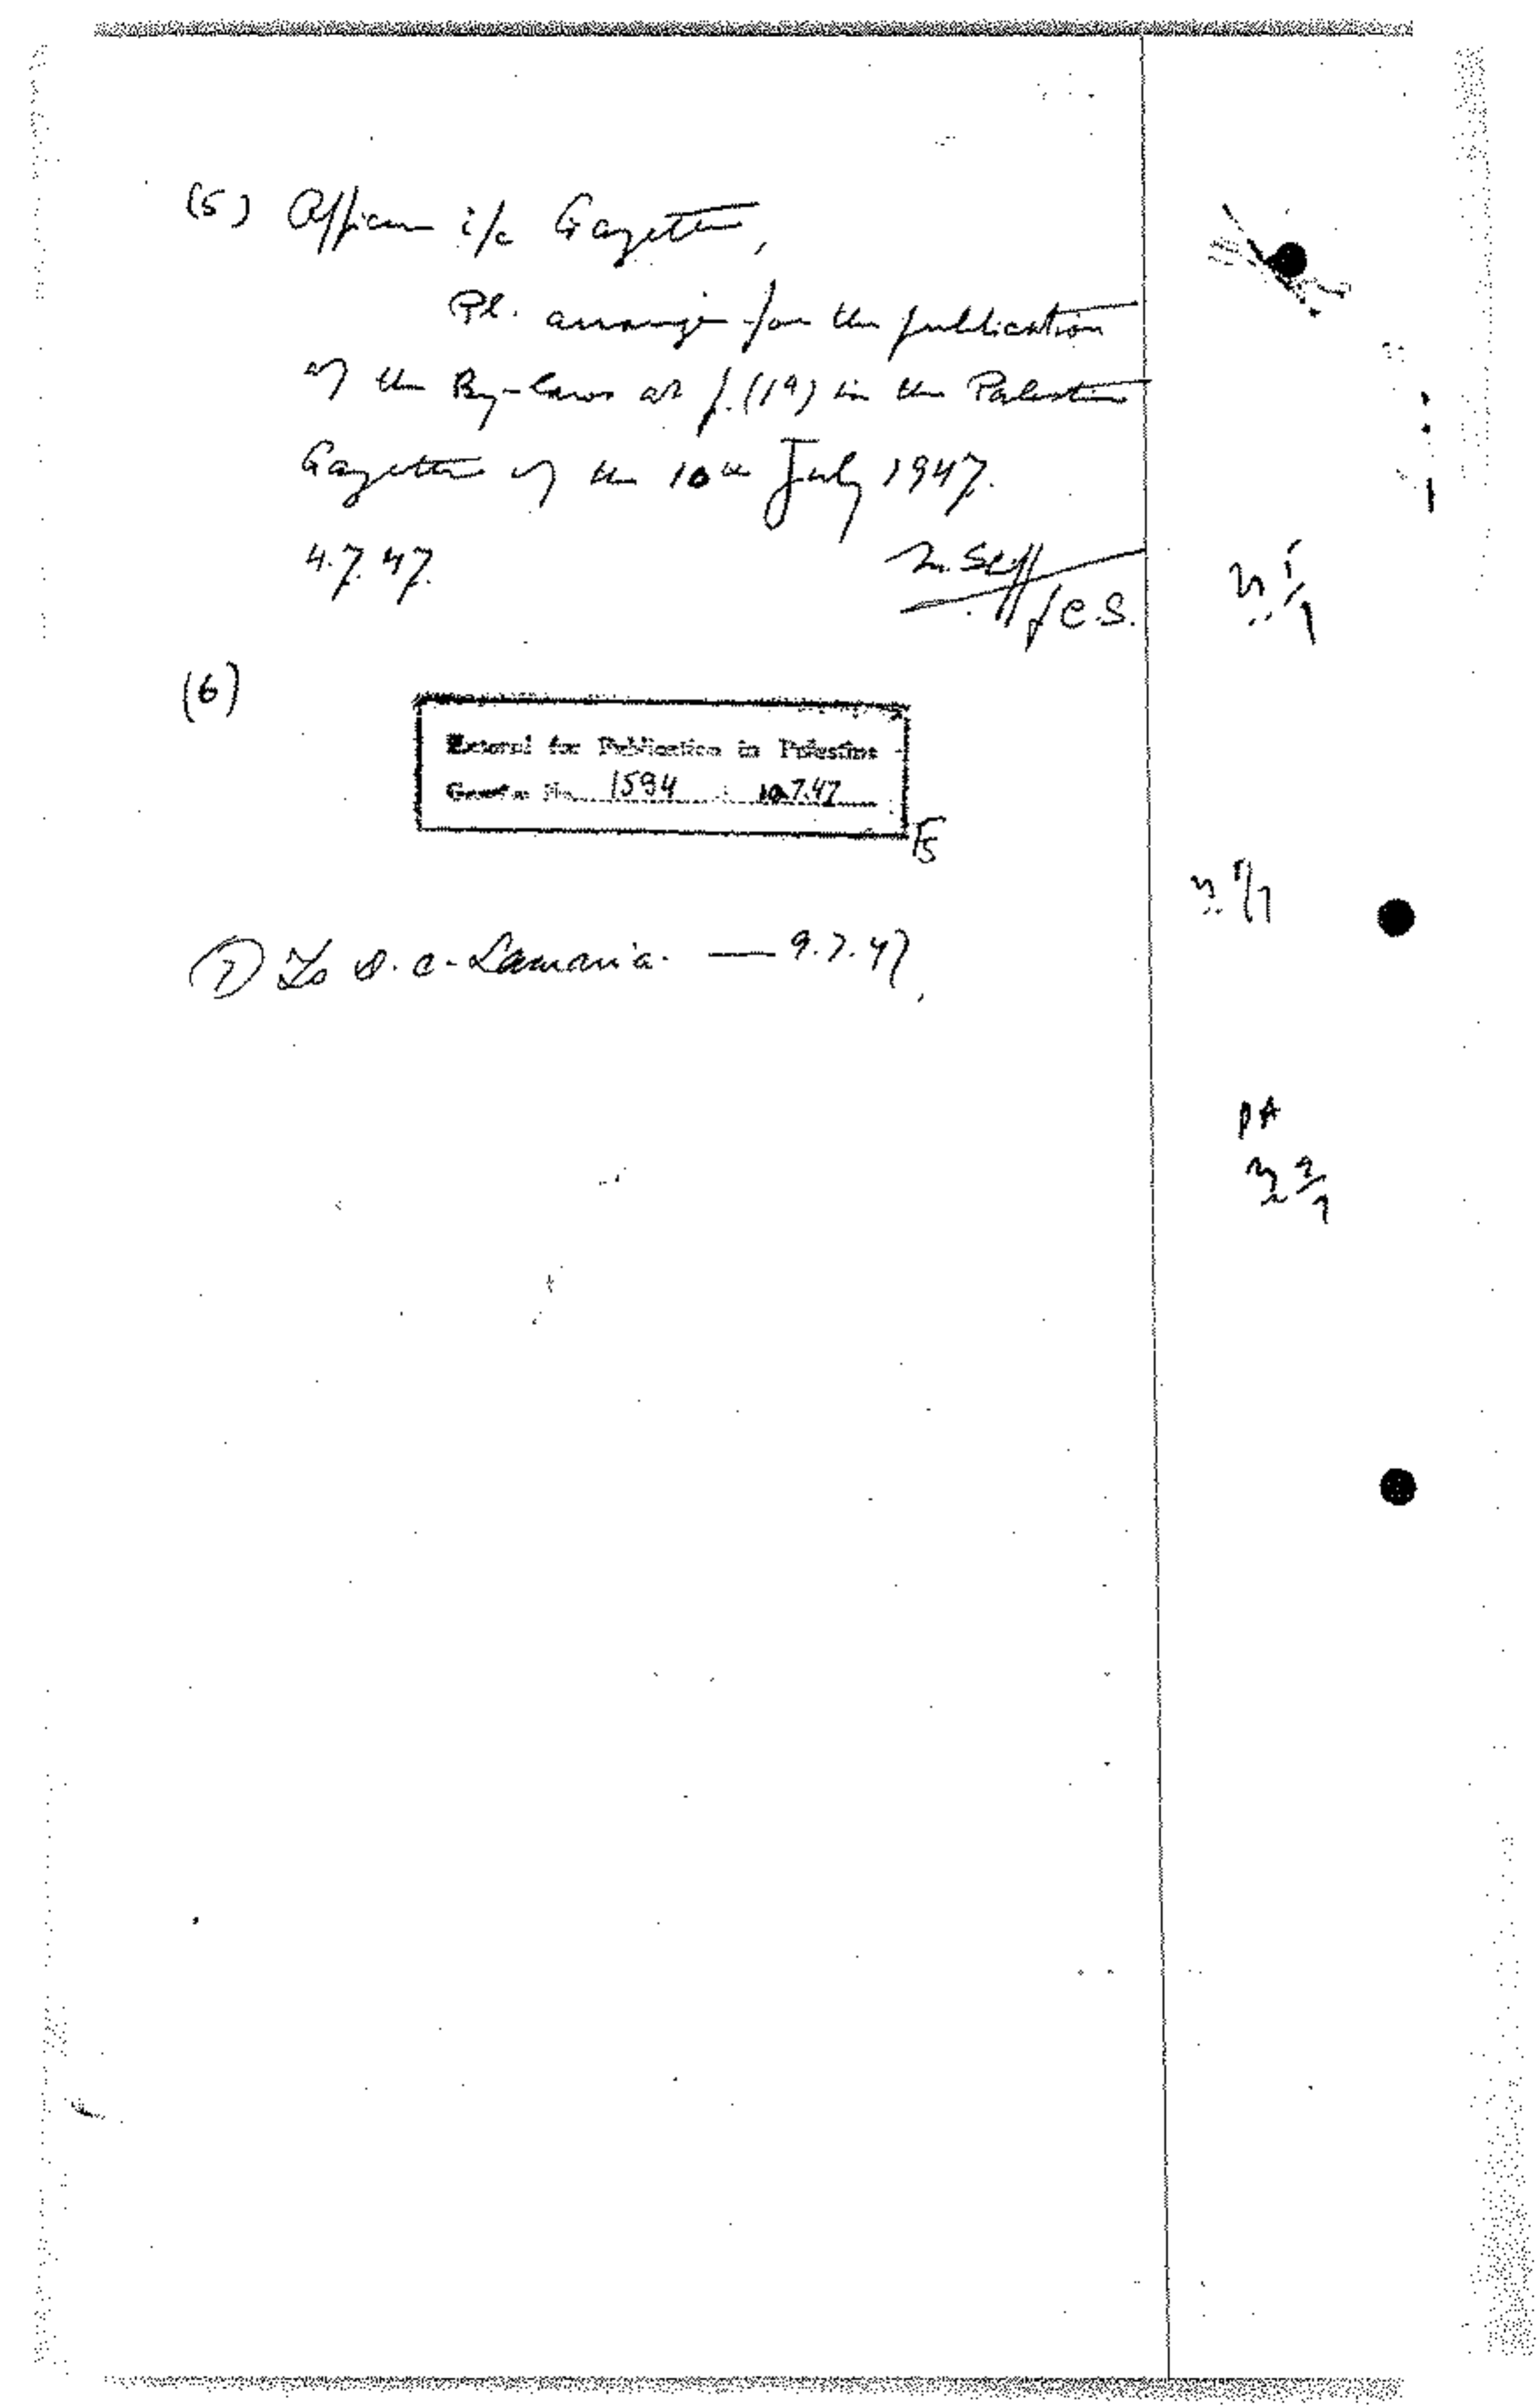 (5) Officer i/c Gazette,
Pl. arrange for the publication
of the By-laws at f. (19) in the Palestine
Gazette of the 10th July 1947.
4.7.47.
M. Seff
f C.S.
(6)
Entered for Publication in Palestine
Gazette No. 1594 : 10.7.47
(7) To D.C. Samaria. — 9.7.47.
PA